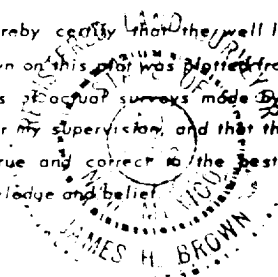 reby certify that the well l
wn on this plat was plotted fro
s of actual surveys made by
r my supervision, and that th
rue and correct to the best
ledge and belief.
REGISTERED LAND SURVEYOR
STATE OF
NEW MEXICO
JAMES H. BROWN